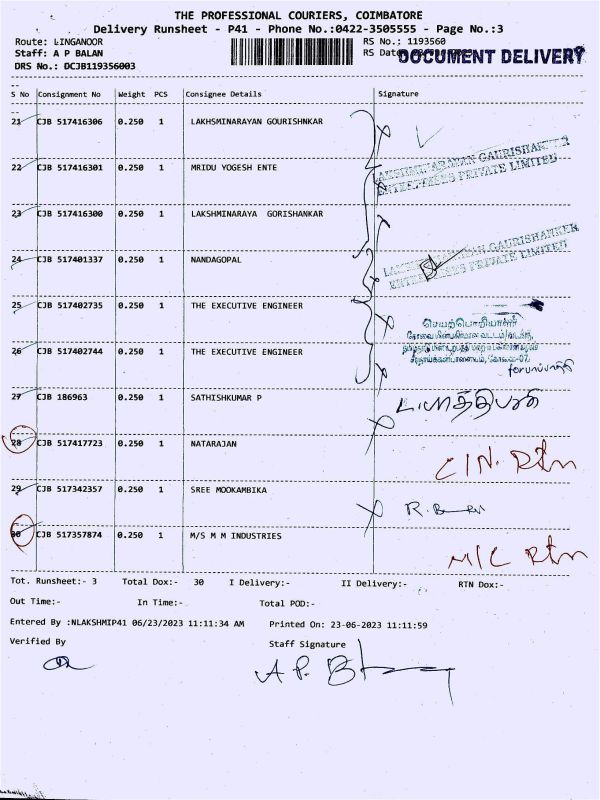 THE PROFESSIONAL COURIERS, COIMBATORE
Delivery Runsheet - P41 - Phone No.:0422-3505555 - Page No.:3
Route: LINGANOOR RS No.: 1193560
Staff: A P BALAN RS Dat DOCUMENT DELIVERY
DRS No.: DCJB119356003
S No Consignment No Weight PCS Consignee Details Signature
21 CJB 517416306 0.250 1 LAKHSMINARAYAN GOURISHNKAR
22 CJB 517416301 0.250 1 MRIDU YOGESH ENTE
LAKSHMINARAYAN GAURISHANKER
ENTERPRISES PRIVATE LIMITED
23 CJB 517416300 0.250 1 LAKSHMINARAYA GORISHANKAR
24 CJB 517401337 0.250 1 NANDAGOPAL
LAKSHMINARAYAN GAURISHANKER
ENTERPRISES PRIVATE LIMITED
25 CJB 517402735 0.250 1 THE EXECUTIVE ENGINEER
செயற்பொறியாளர்
26 CJB 517402744 0.250 1 THE EXECUTIVE ENGINEER
27 CJB 186963 0.250 1 SATHISHKUMAR P
28 CJB 517417723 0.250 1 NATARAJAN
C/N. Rtn
29 CJB 517342357 0.250 1 SREE MOOKAMBIKA
30 CJB 517357874 0.250 1 M/S M M INDUSTRIES
N/C Rtn
Tot. Runsheet:- 3 Total Dox:- 30 I Delivery:- II Delivery:- RTN Dox:-
Out Time:- In Time:- Total POD:-
Entered By :NLAKSHMIP41 06/23/2023 11:11:34 AM Printed On: 23-06-2023 11:11:59
Verified By Staff Signature